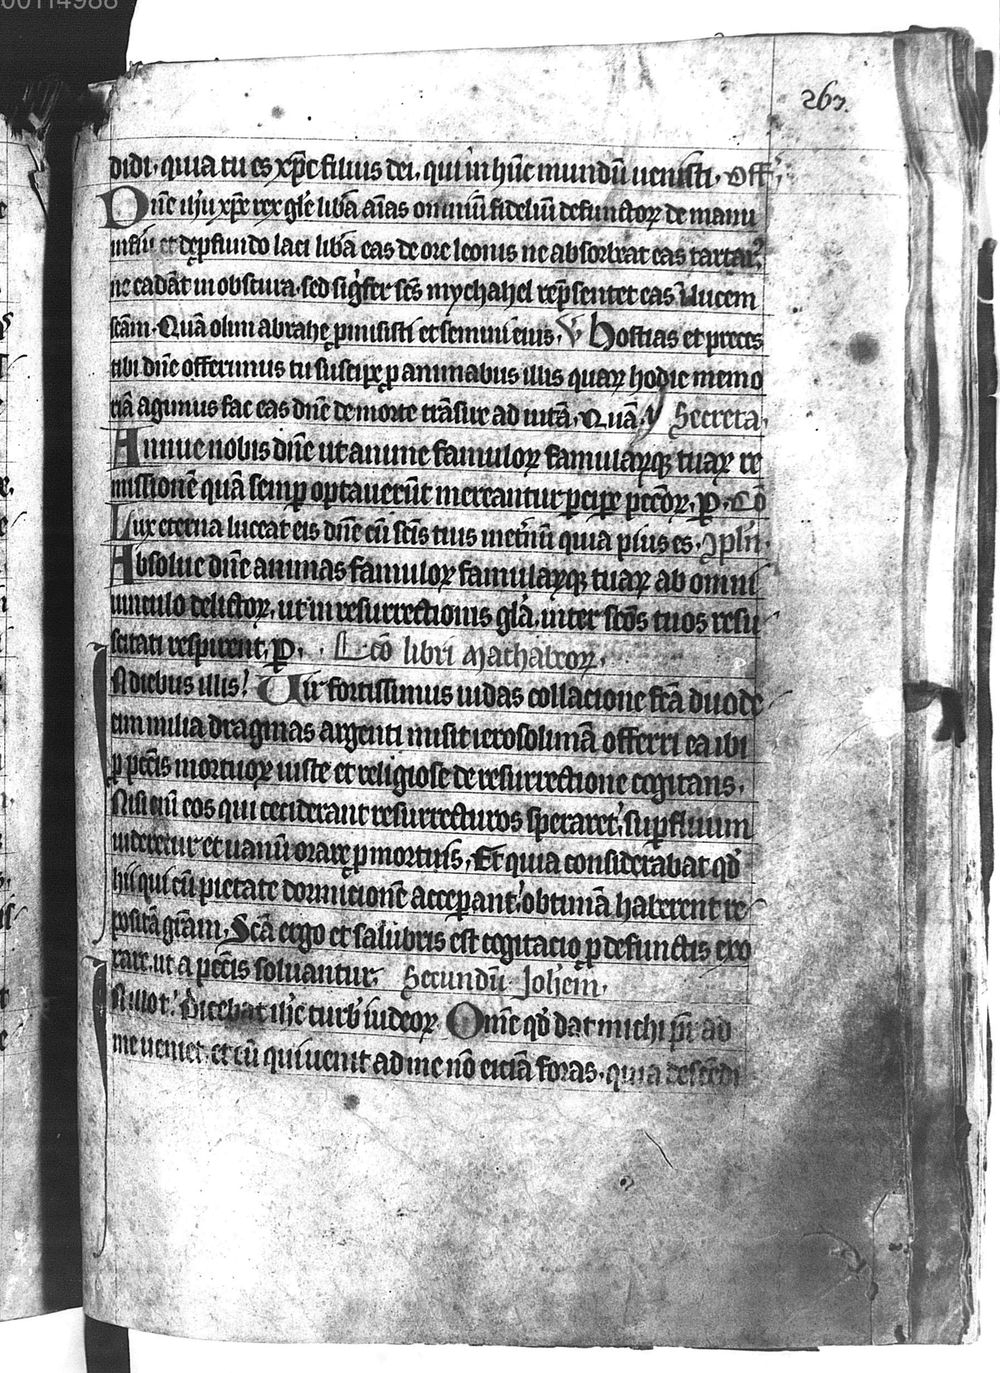 00114988
267.
didi. quia tu es xp̄c filius dei. qui in hūc mundū uenisti. Off̄.
Dn̄e ih̄u xp̄e rex gl̄e liba aīas omniū fideliū defunctoꝝ de manu
inf̄ni et de ꝓfundo laci liba eas de ore leonis ne absorbeat eas tartar᷒.
ne cadāt in obscura. sed sigͥfer sc̄s mychahel rep̄sentet eas ī lucem
sc̄am. Quā olim abrahę ꝓmisisti et semini eius. V̄ Hostias et preces
tibi dn̄e offerimus tu suscipe ꝓ animabus illis quaꝝ hodie memo
riā agimus fac eas dn̄e de morte trāsire ad uitā. Quā. Secreta.
Annue nobis dn̄e ut anime famuloꝝ famulaꝝq; tuaꝝ re
missionē quā semꝑ optauerūt mereantur ꝑcipe pccōꝝ. ꝑ. Cō
Lux eterna luceat eis dn̄e cū scīs tuis inet̄nū quia pius es. ꝯpln̄.
Absolue dn̄e animas famuloꝝ famulaꝝq; tuaꝝ ab omni
uinculo delictoꝝ. ut in resurrectionis gl̄a. inter scōs tuos resu
scitati respirent. ꝑ. Lcō libri Machabeoꝝ.
N diebus illis. Uir fortissimus iudas collacione fc̄a duode
cim milia dragmas argenti misit ierosolimā offerri ea ibi
ꝓ pecc̄is mortuoꝝ iuste et religiose de resurrectione cogitans.
Nisi enī eos qui ceciderant resurrecturos speraret. suꝑfluum
uideretur et uanū orare ꝓ mortuis. Et quia considerabat qd̄
hii qui cū pietate dormitionē acceꝑant. obtimā haberent re
positā grām. Scā ergo et salubris est cogitacio ꝓ defunctis exo
rare. ut a pecc̄is soluantur. Secundū Joh̄em.
N illo t̄. Dicebat ih̄c turb̄ iudeoꝝ. Om̄e qd̄ dat michi pr̄ ad
me ueniet. et eū qui uenit ad me nō eiciā foras. quia descēdi